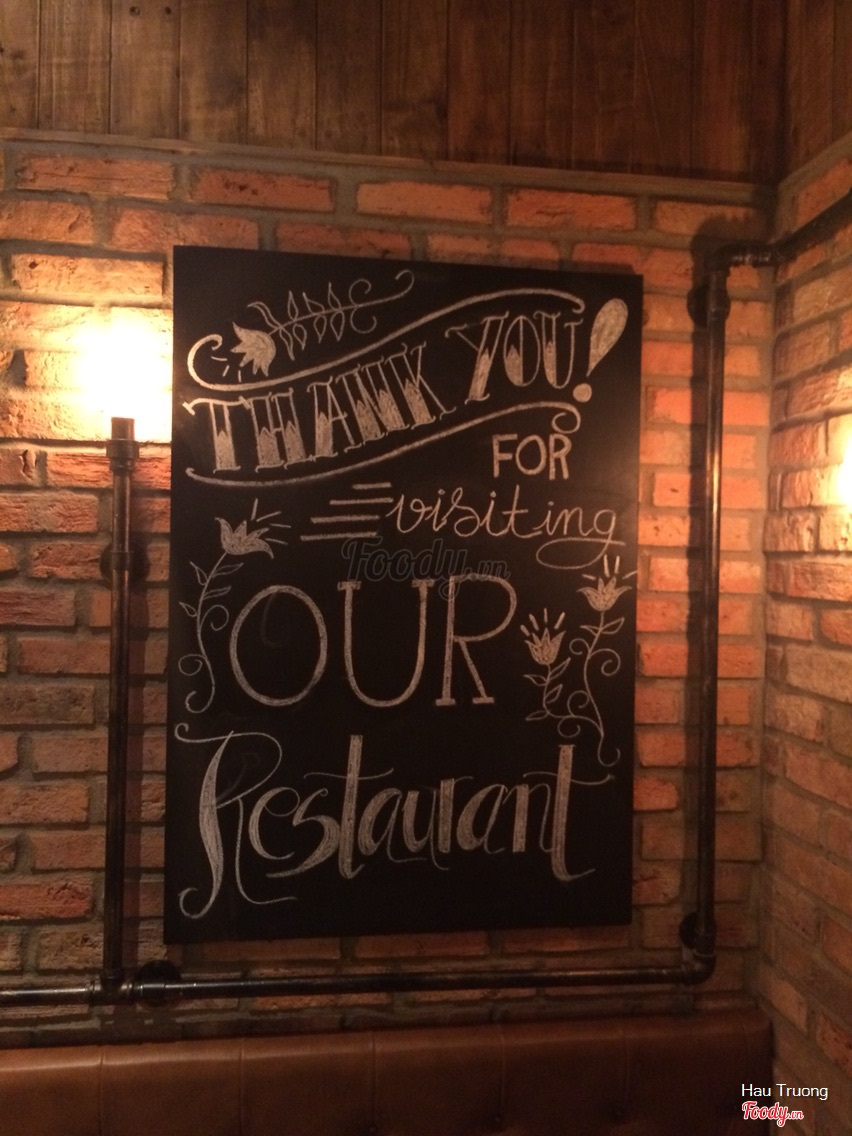 THANK YOU!
FOR
visiting
Foody.vn
OUR
Restaurant
Hau Truong
Foody.vn